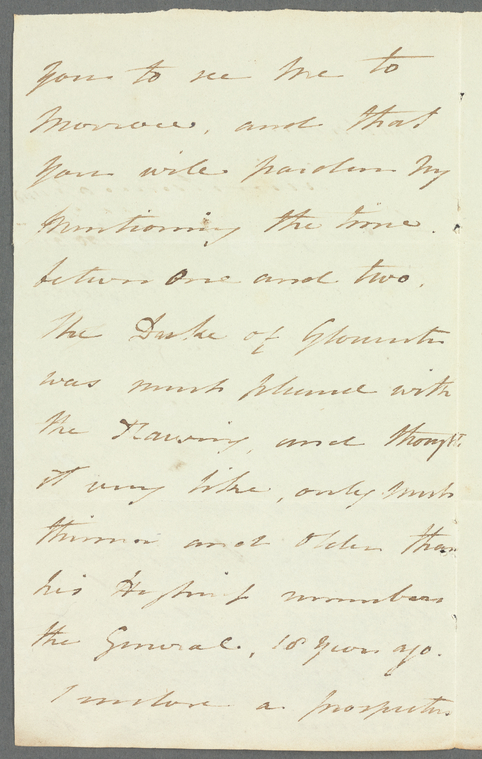 you to see me to
morrow, and that
you will pardon my
mentioning the time.
between One and two.
The Duke of Gloucester
was much pleased with
the Drawing, and though
it very like, only much
thinner and Older than
his Highness remembers
the General, 18 years ago.
I enclose a prospectus